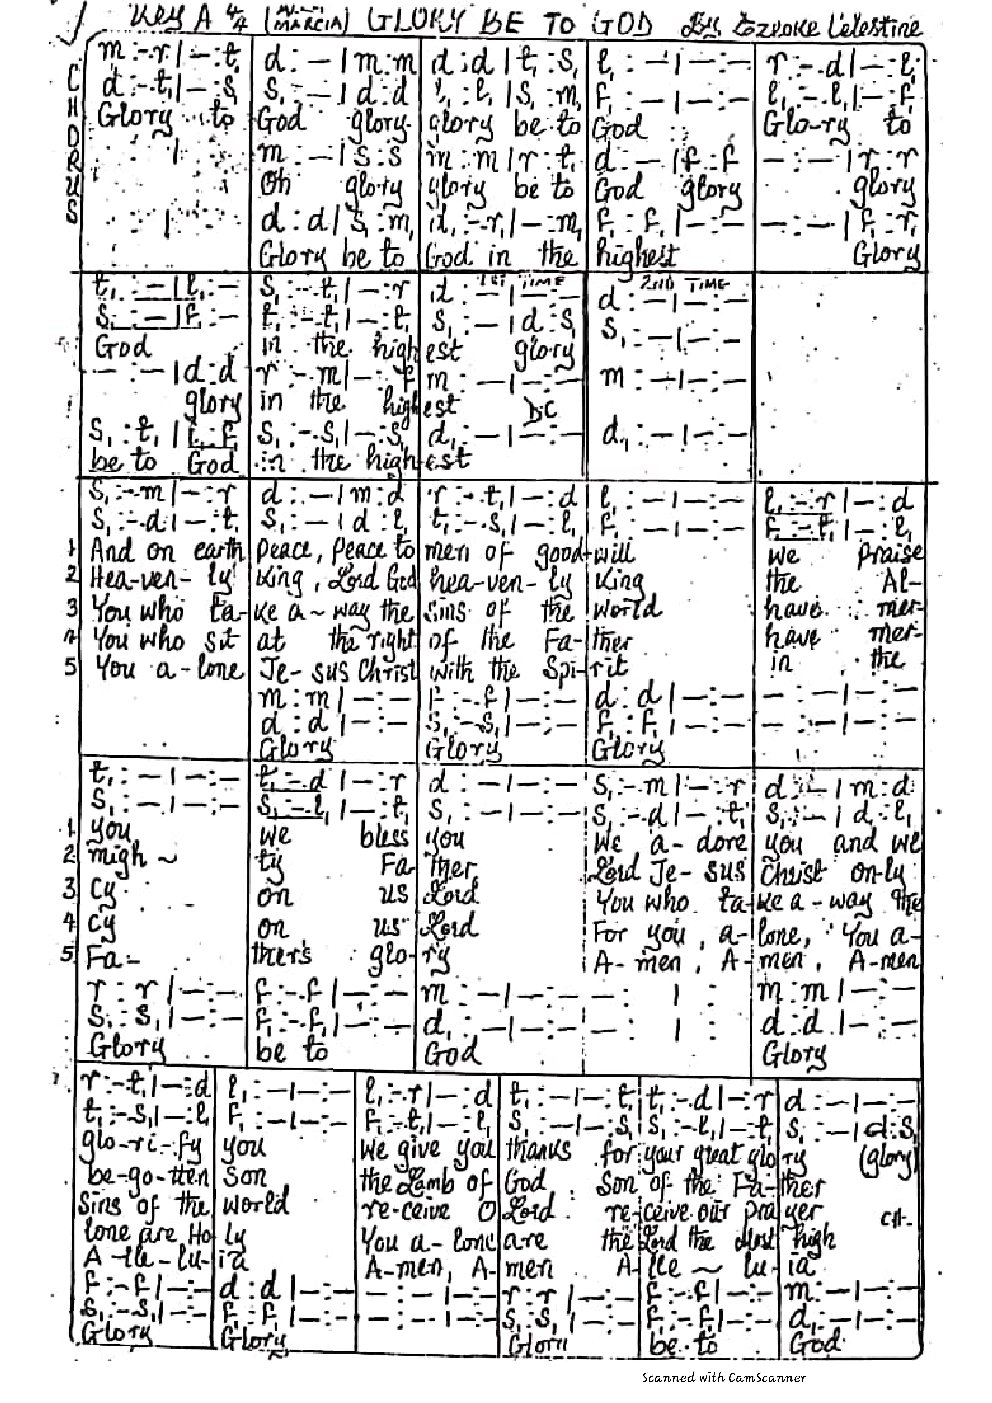 Key A 4/4 (MARCIA) GLORY BE TO GOD By Ezeoke Celestine
CHORUS
m :-.r | - : t, d : - | m : m d : d | t, : s, l, : - | - : - r : - .d | - : l,
d :-.t, | - : s, s, : - | d : d l, : l, | s, : m, f, : - | - : - l, : - .l, | - : f,
Glory to God glory glory be to God Glo-ry to
m : - | s : s m : m | r : t, d : - | f : f - : - | r : r
Oh glory glory be to God glory glory
d : d | s, : m, d, : -.r, | - : m, f, : f, | - : - - : - | f, : r,
Glory be to God in the highest Glory
1ST TIME 2ND TIME
t, : - | l, : - s, : -.t, | - : r d : - | - : - d : - | - : -
s, : - | f, : - t, : -.t, | - : t, s, : - | d : s, s, : - | - : -
God in the high est glory
- : - | d : d r : -.m | - : f m : - | - : - m : - | - : -
glory in the highest DC
s, : t, | l, : f, s, : -.s, | - : s, d, : - | - : - d, : - | - : -
be to God in the high-est
s, : -.m | - : r d : - | m : d r : -.t, | - : d l, : - | - : - l, : -.r | - : d
s, : -.d | - : t, s, : - | d : l, t, : -.s, | - : l, f, : - | - : - f, : -.t, | - : l,
1 And on earth Peace, Peace to men of good-will we praise
2 Hea-ven-ly King, Lord God hea-ven-ly King the Al-
3 You who ta-ke a-way the sins of the world have mer-
4 You who sit at the right of the Fa-ther have mer-
5 You a-lone Je-sus Christ with the Spi-rit in the
m : m | - : - f : -.f | - : - d : d | - : - - : - | - : -
d : d | - : - s, : -.s, | - : - f, : f, | - : - - : - | - : -
Glory Glory Glory
t, : - | - : - t, : -.d | - : r d : - | - : - s, : -.m | - : r d : - | m : d
s, : - | - : - s, : -.l, | - : t, s, : - | - : - s, : -.d | - : t, s, : - | d : l,
1 you we bless you We a-dore you and we
2 migh ~ ty Fa-ther Lord Je-sus Christ on-ly
3 Cy on us Lord You who ta-ke a-way the
4 Cy on us Lord For you, a-lone, You a-
5 Fa- ther's glo-ry A-men, A-men, A-men
r : r | - : - f : -.f | - : - m : - | - : - - : | : m : m | - : -
s, : s, | - : - f, : -.f, | - : - d, : - | - : - - : | : d : d | - : -
Glory be to God Glory
r : -.t, | - : d l, : - | - : - l, : -.r | - : d t, : - | - : t, t, : -.d | - : r d : - | - : -
t, : -.s, | - : l, f, : - | - : - f, : -.t, | - : l, s, : - | - : s, s, : -.l, | - : t, s, : - | d : s,
glo-ri-fy you We give you thanks for your great glory (glory)
be-go-tten Son the Lamb of God Son of the Fa-ther
Sins of the world re-ceive O Lord re-ceive our prayer CH.
lone are Ho-ly You a-lone are the Lord the Most high
A-lle-lu-ia A-men, A-men A-lle ~ lu-ia
f : -.f | - : - d : d | - : - - : - | - : - r : r | - : - f : -.f | - : - m : - | - : -
s, : -.s, | - : - f, : f, | - : - - : - | - : - s, : s, | - : - f, : -.f, | - : - d, : - | - : -
Glory Glory Glory be to God
Scanned with CamScanner